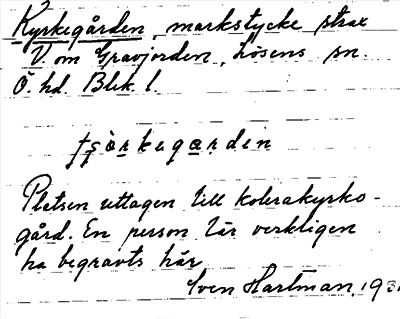 Kyrkegården, markstycke strax
V. om Gravjorden, Lösens sn.
Ö. hd. Blek. l.
Platsen uttagen till kolerakyrko-
gård. En person lär verkligen
ha begravts här
Sven Hartman, 193